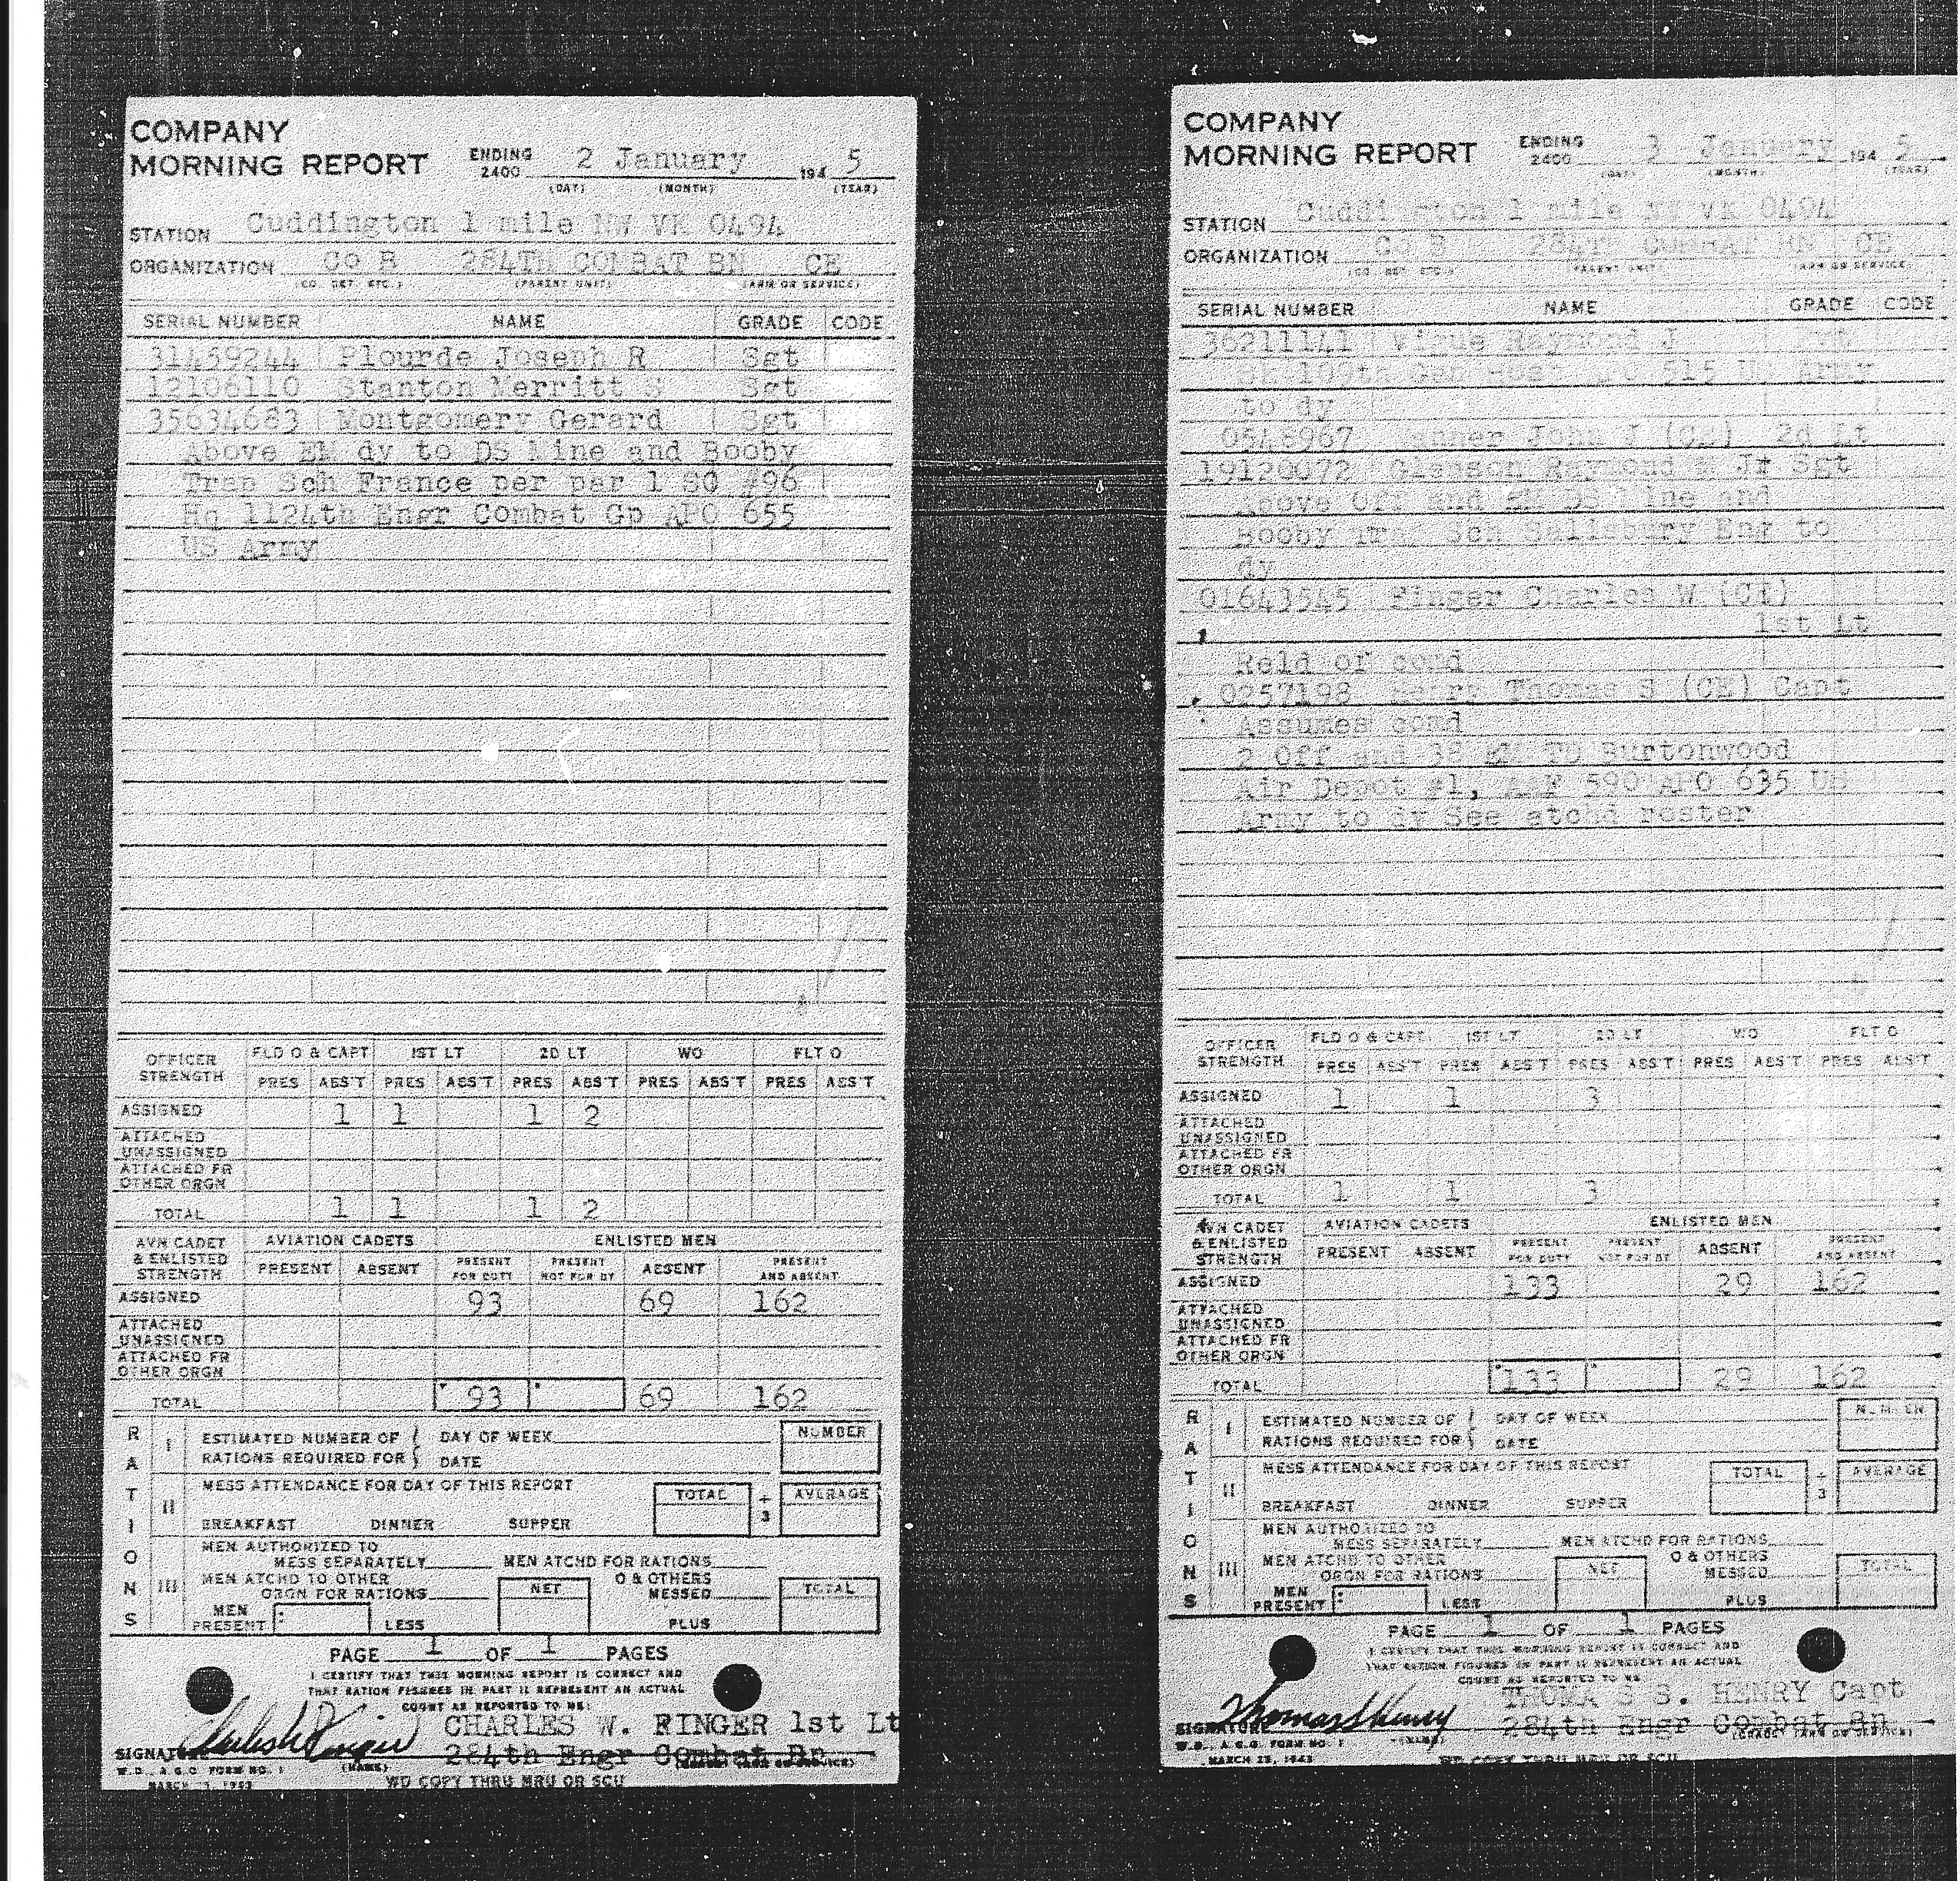 COMPANY
MORNING REPORT ENDING 2400 2 January 194 5
(DAY) (MONTH) (YEAR)
STATION Cuddington 1 mile NW VK 0494
ORGANIZATION CO B 284TH COMBAT BN CE
(CO. DET ETC.) (PARENT UNIT) (ARM OR SERVICE)
SERIAL NUMBER NAME GRADE CODE
31459244 Plourde Joseph R Sgt
12106110 Stanton Merritt S Sgt
35634683 Montgomery Gerard Sgt
Above EM dy to DS Mine and Booby
Trap Sch France per par 1 SO #96
Hq 1124th Engr Combat Gp APO 655
US Army
OFFICER STRENGTH FLD O & CAPT 1ST LT 2D LT WO FLT O
PRES ABS'T PRES ABS'T PRES ABS'T PRES ABS'T PRES ABS'T
ASSIGNED 1 1 1 2
ATTACHED UNASSIGNED
ATTACHED FR OTHER ORGN
TOTAL 1 1 1 2
AVN CADET & ENLISTED STRENGTH AVIATION CADETS ENLISTED MEN
PRESENT ABSENT PRESENT FOR DUTY PRESENT NOT FOR DY ABSENT PRESENT AND ABSENT
ASSIGNED 93 69 162
ATTACHED UNASSIGNED
ATTACHED FR OTHER ORGN
TOTAL 93 69 162
RATIONS
I ESTIMATED NUMBER OF RATIONS REQUIRED FOR { DAY OF WEEK DATE NUMBER
II MESS ATTENDANCE FOR DAY OF THIS REPORT TOTAL ÷ 3 AVERAGE
BREAKFAST DINNER SUPPER
III MEN AUTHORIZED TO MESS SEPARATELY MEN ATCHD FOR RATIONS
MEN ATCHD TO OTHER ORGN FOR RATIONS NET O & OTHERS MESSED TOTAL
MEN PRESENT : LESS PLUS
PAGE 1 OF 1 PAGES
I CERTIFY THAT THIS MORNING REPORT IS CORRECT AND
THAT RATION FIGURES IN PART II REPRESENT AN ACTUAL
COUNT AS REPORTED TO ME:
CHARLES W. RINGER 1st Lt
SIGNATURE 284th Engr Combat Bn
W.D., A.G.O. FORM NO. 1 (NAME) (GRADE) (ARM OR SERVICE)
MARCH 23, 1943 WD COPY THRU MRU OR SCU
COMPANY
MORNING REPORT ENDING 2400 3 January 194 5
(DAY) (MONTH) (YEAR)
STATION Cuddington 1 mile NW VK 0494
ORGANIZATION CO B 284TH COMBAT BN CE
(CO. DET ETC.) (PARENT UNIT) (ARM OR SERVICE)
SERIAL NUMBER NAME GRADE CODE
36211141 Raymond J Pvt
SK 109th Gen Hosp APO 515 US Army
to dy
0548967 John J (CE) 2d Lt
19120072 Gleason Raymond Jr Sgt
Above Off and EM DS Mine and
Booby Trap Sch Salisbury Eng to
dy
01643545 Ringer Charles W (CE)
1st Lt
Reld of comd
0257198 Henry Thomas S (CE) Capt
Assumes comd
2 Off and 38 EM TD Burtonwood
Air Depot #1, AAF 590 APO 635 US
Army to dy See atchd roster
OFFICER STRENGTH FLD O & CAPT 1ST LT 2D LT WO FLT O
PRES ABS'T PRES ABS'T PRES ABS'T PRES ABS'T PRES ABS'T
ASSIGNED 1 1 3
ATTACHED UNASSIGNED
ATTACHED FR OTHER ORGN
TOTAL 1 1 3
AVN CADET & ENLISTED STRENGTH AVIATION CADETS ENLISTED MEN
PRESENT ABSENT PRESENT FOR DUTY PRESENT NOT FOR DY ABSENT PRESENT AND ABSENT
ASSIGNED 133 29 162
ATTACHED UNASSIGNED
ATTACHED FR OTHER ORGN
TOTAL 133 29 162
RATIONS
I ESTIMATED NUMBER OF RATIONS REQUIRED FOR { DAY OF WEEK DATE NUMBER
II MESS ATTENDANCE FOR DAY OF THIS REPORT TOTAL ÷ 3 AVERAGE
BREAKFAST DINNER SUPPER
III MEN AUTHORIZED TO MESS SEPARATELY MEN ATCHD FOR RATIONS
MEN ATCHD TO OTHER ORGN FOR RATIONS NET O & OTHERS MESSED TOTAL
MEN PRESENT : LESS PLUS
PAGE 1 OF 1 PAGES
I CERTIFY THAT THIS MORNING REPORT IS CORRECT AND
THAT RATION FIGURES IN PART II REPRESENT AN ACTUAL
COUNT AS REPORTED TO ME
Thomas S Henry THOMAS S. HENRY Capt
SIGNATURE 284th Engr Combat Bn
W.D., A.G.O. FORM NO. 1 (NAME) (GRADE) (ARM OR SERVICE)
MARCH 23, 1943 WD COPY THRU MRU OR SCU